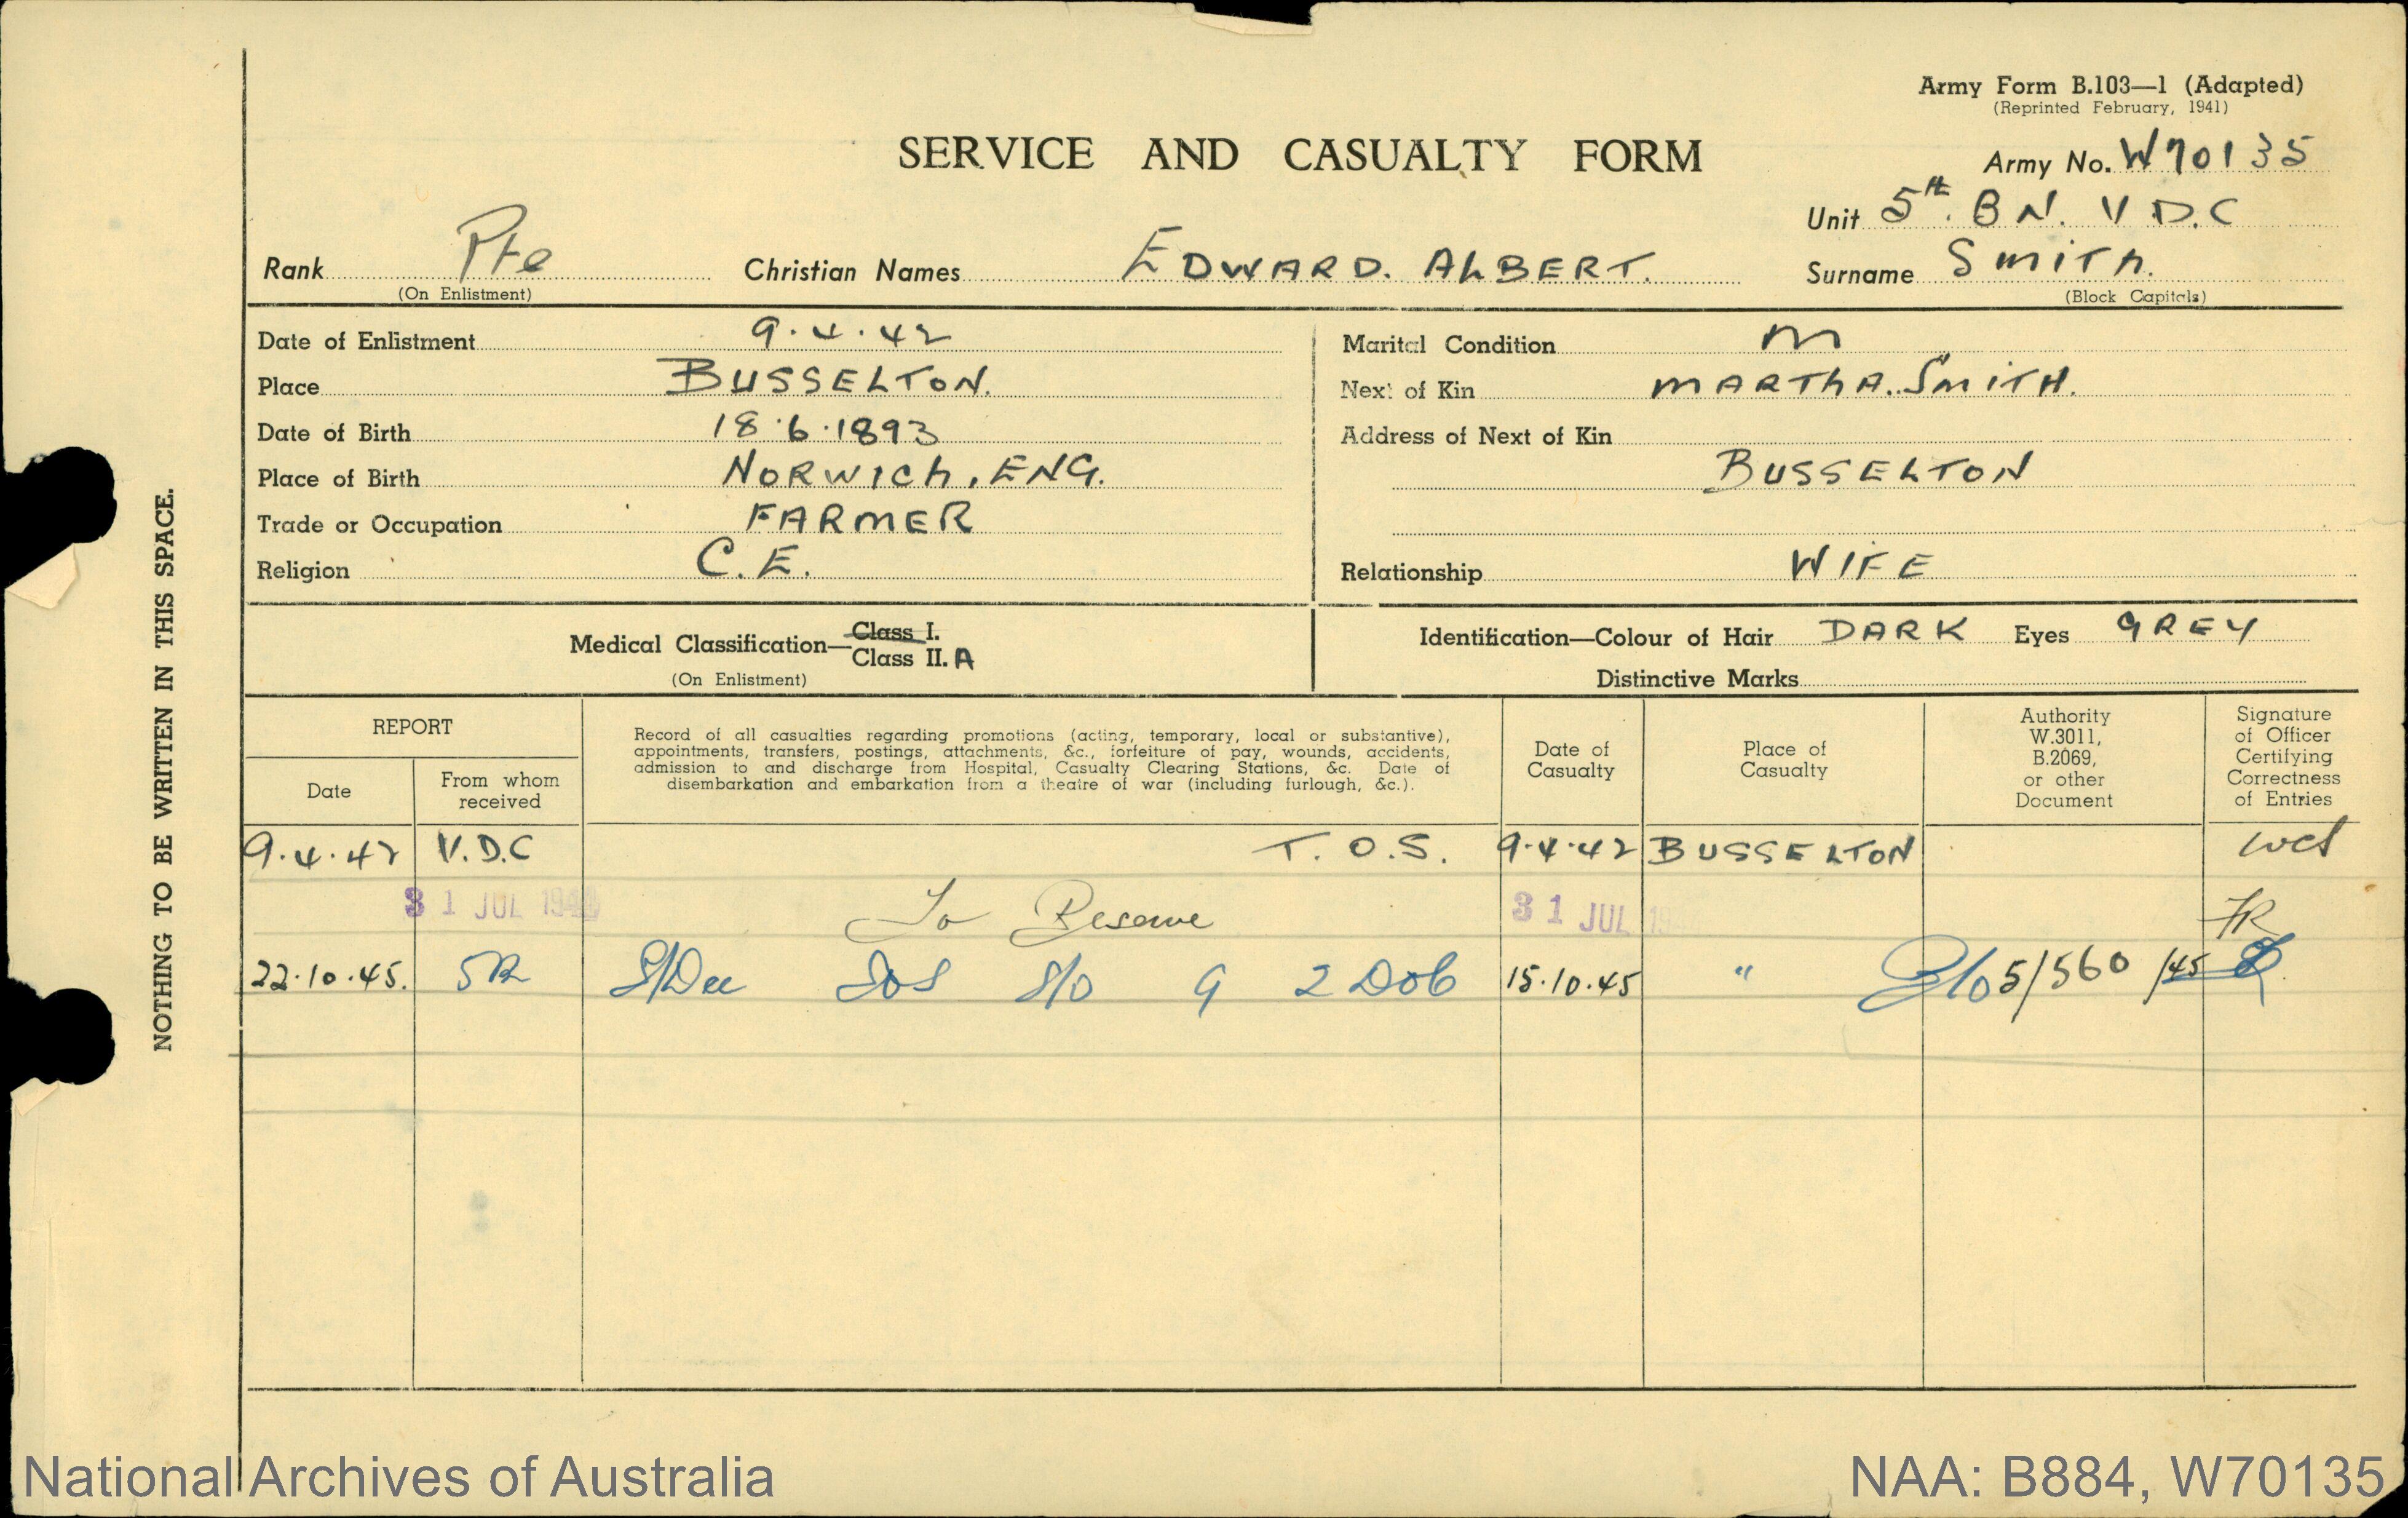 Army Form B.103—1 (Adapted)
(Reprinted February, 1941)
SERVICE AND CASUALTY FORM
Army No. W70135
Unit 5th. BN. V D.C
Rank Pte Christian Names EDWARD. ALBERT. Surname SMITH.
(On Enlistment) (Block Capitals)
Date of Enlistment 9.4.42
Place BUSSELTON.
Date of Birth 18.6.1893
Place of Birth NORWICH, ENG.
Trade or Occupation FARMER
Religion C.E.
Marital Condition M
Next of Kin MARTHA. SMITH.
Address of Next of Kin
BUSSELTON
Relationship WIFE
Medical Classification— Class I.
Class II. A
(On Enlistment)
Identification—Colour of Hair DARK Eyes GREY
Distinctive Marks
REPORT
Date
From whom received
Record of all casualties regarding promotions (acting, temporary, local or substantive),
appointments, transfers, postings, attachments, &c., forfeiture of pay, wounds, accidents,
admission to and discharge from Hospital, Casualty Clearing Stations, &c. Date of
disembarkation and embarkation from a theatre of war (including furlough, &c.).
Date of
Casualty
Place of
Casualty
Authority
W.3011,
B.2069,
or other
Document
Signature
of Officer
Certifying
Correctness
of Entries
9.4.42 V.D.C T.O.S. 9.4.42 BUSSELTON
31 JUL 194 To Reserve 31 JUL 19
22.10.45. 15.10.45 " 5/560 /45
NOTHING TO BE WRITTEN IN THIS SPACE.
National Archives of Australia
NAA: B884, W70135